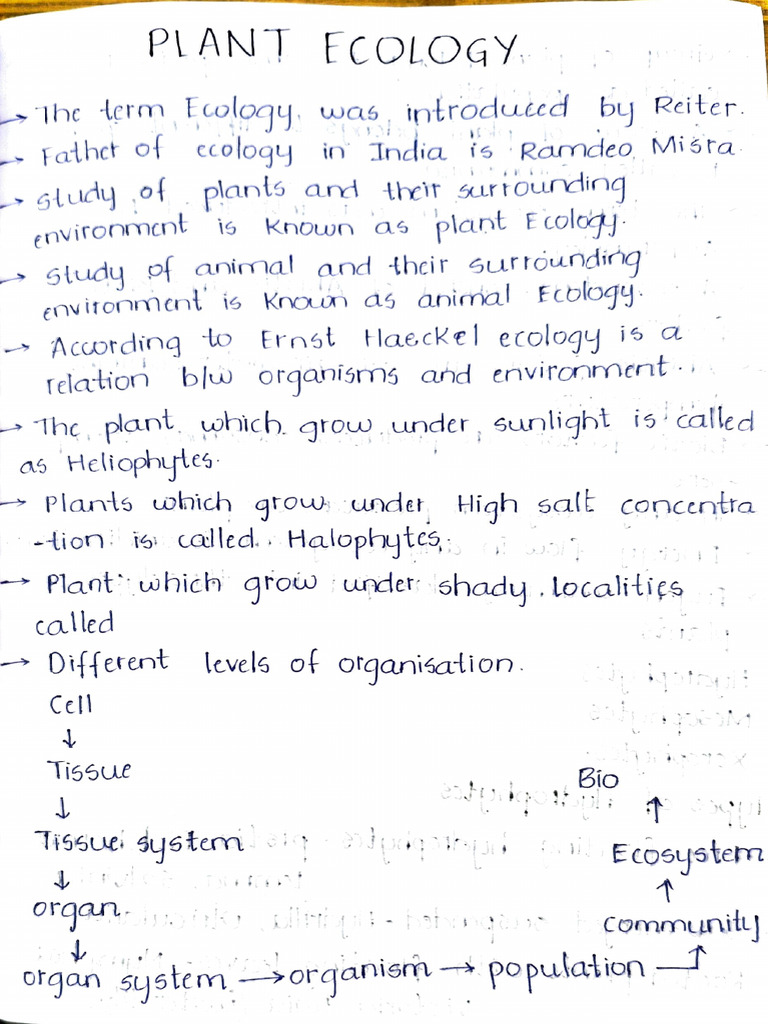 PLANT ECOLOGY
→ The term Ecology was introduced by Reiter.
→ Father of ecology in India is Ramdeo Misra
→ Study of plants and their surrounding
environment is known as plant Ecology.
→ Study of animal and their surrounding
environment is known as animal Ecology.
→ According to Ernst Haeckel ecology is a
relation b/w organisms and environment.
→ The plant which grow under sunlight is called
as Heliophytes.
→ Plants which grow under High salt concentra
-tion is called Halophytes.
→ Plant which grow under shady localities
called
→ Different levels of organisation.
Cell
↓
Tissue
↓
Tissue system
↓
organ
↓
organ system → organism → population →
community
↑
Ecosystem
↑
Bio